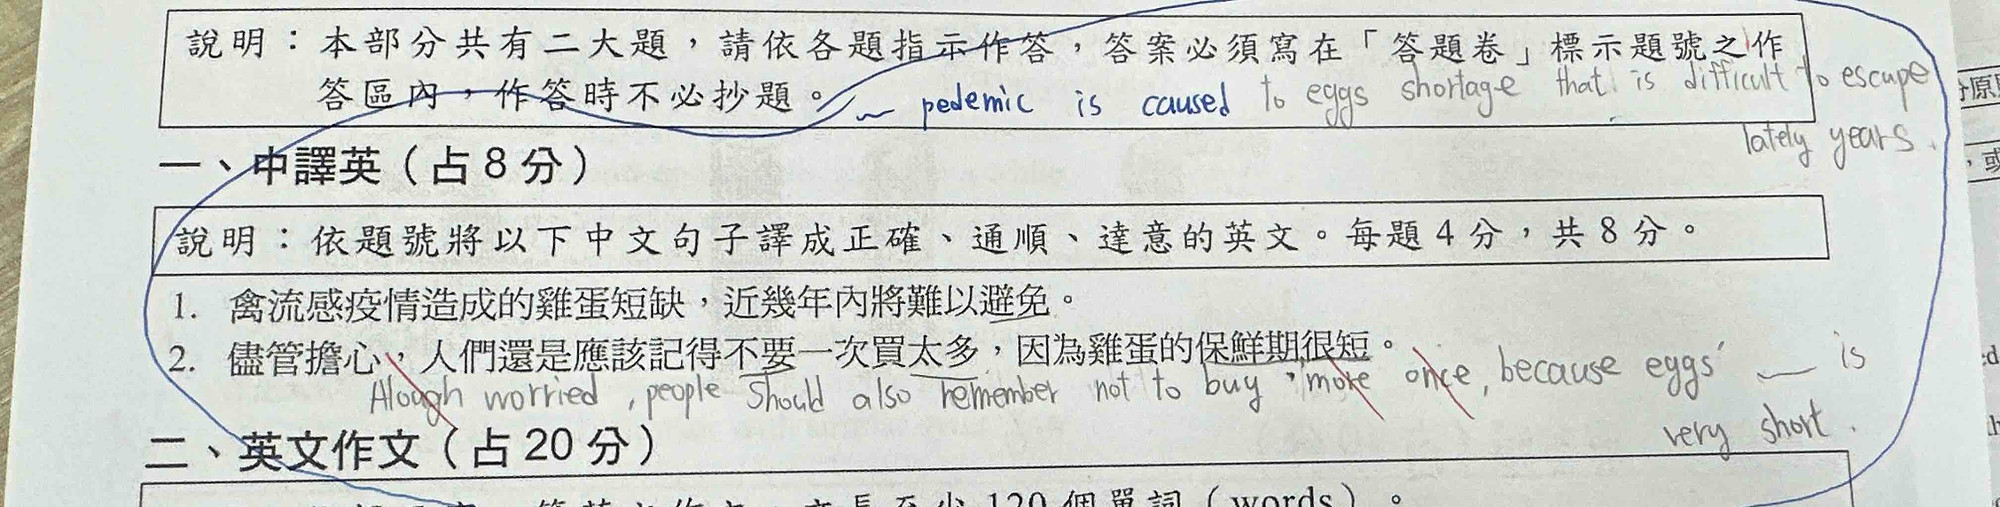 說明：本部分共有二大題，請依各題指示作答，答案必須寫在「答題卷」標示題號之作
答區內，作答時不必抄題。
pedemic is caused to eggs shortage that is difficult to escape
lately years.
一、中譯英（占8分）
說明：依題號將以下中文句子譯成正確、通順、達意的英文。每題4分，共8分。
1. 禽流感疫情造成的雞蛋短缺，近幾年內將難以避免。
2. 儘管擔心，人們還是應該記得不要一次買太多，因為雞蛋的保鮮期很短。
Alough worried, people should also remember not to buy more once, because eggs' is
very short.
二、英文作文（占20分）
文長至少120個單詞（words）。